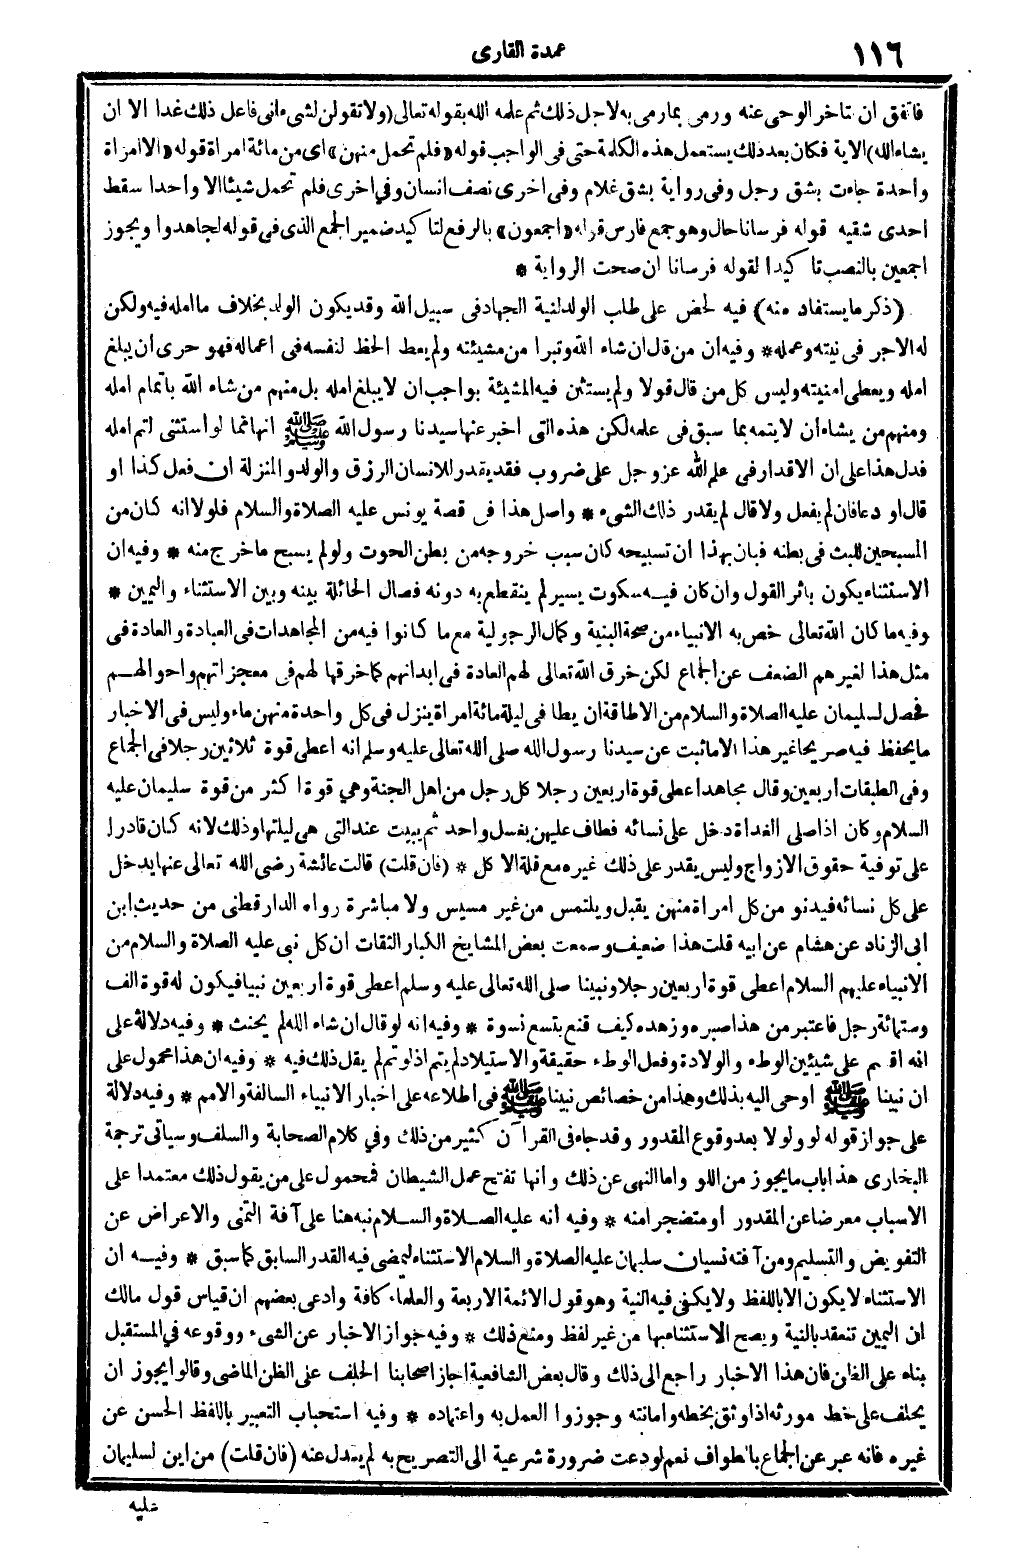 ١١٦
عمدة القارى
فاتفق ان تاخر الوحى عنه ورمى بمارمى به لاجل ذلك ثم علمه الله بقوله تعالى (ولاتقولن لشىء انى فاعل ذلك غدا الا ان
يشاء الله) الاية فكان بعد ذلك يستعمل هذه الكلمة حتى فى الواجب قوله «فلم تحمل منهن» اى من مائة امراة قوله «الا امراة
واحدة جاءت بشق رجل وفى رواية بشق غلام وفى اخرى نصف انسان وفي اخرى فلم تحمل شيئا الا واحدا سقط
احدى شقيه قوله فرسانا حال وهو جمع فارس قوله «اجمعون» بالرفع لتاكيد ضمير الجمع الذى فى قوله لجاهدوا ويجوز
اجمعين بالنصب تاكيدا لقوله فرسانا ان صحت الرواية *
(ذكر ما يستفاد منه) فيه لحض على طلب الولد لنية الجهاد فى سبيل الله وقد يكون الولد بخلاف ما امله فيه ولكن
له الاجر فى نيته وعمله * وفيه ان من قال ان شاء الله وتبرا من مشيئته ولم يعط الحظ لنفسه فى اعماله فهو حرى ان يبلغ
امله ويعطى امنيته وليس كل من قال قولا ولم يستثن فيه المشيئة بواجب ان لا يبلغ امله بل منهم من شاء الله باتمام امله
ومنهم من يشاء ان لا يتمه بما سبق فى علمه لكن هذه التى اخبر عنها سيدنا رسول الله ﷺ انها مما لو استثنى لتم امله
فدل هذا على ان الاقدار فى علم الله عز وجل على ضروب فقد يقدر للانسان الرزق والولد والمنزلة ان فعل كذا او
قال او دعا فان لم يفعل ولا قال لم يقدر ذلك الشىء * واصل هذا فى قصة يونس عليه الصلاة والسلام فلولا انه كان من
المسبحين للبث فى بطنه فبان بهذا ان تسبيحه كان سبب خروجه من بطن الحوت ولو لم يسبح ما خرج منه * وفيه ان
الاستثناء يكون باثر القول وان كان فيه سكوت يسير لم ينقطع به دونه فصال الحائلة بينه وبين الاستثناء واليمين *
وفيه ما كان الله تعالى خص به الانبياء من صحة البنية وكمال الرجولية مع ما كانوا فيه من المجاهدات فى العبادة والعادة فى
مثل هذا لغيرهم الضعف عن الجماع لكن خرق الله تعالى لهم العادة فى ابدانهم كما خرقها لهم فى معجزاتهم واحوالهم
فحصل لسليمان عليه الصلاة والسلام من الاطاقة ان يطا فى ليلة مائة امراة ينزل فى كل واحدة منهن ماء وليس فى الاخبار
ما يحفظ فيه صريحا غير هذا الا ما ثبت عن سيدنا رسول الله صلى الله تعالى عليه وسلم انه اعطى قوة ثلاثين رجلا فى الجماع
وفى الطبقات اربعين وقال مجاهد اعطى قوة اربعين رجلا كل رجل من اهل الجنة وهي قوة اكثر من قوة سليمان عليه
السلام وكان اذا صلى الغداة دخل على نسائه فطاف عليهن بغسل واحد ثم يبيت عند التى هى ليلتها وذلك لانه كان قادرا
على توفية حقوق الازواج وليس يقدر على ذلك غيره مع قلة الاكل * (فان قلت) قالت عائشة رضى الله تعالى عنها يدخل
على كل نسائه فيدنو من كل امراة منهن يقبل ويلتمس من غير مسيس ولا مباشرة رواه الدارقطنى من حديث ابن
ابى الزناد عن هشام عن ابيه قلت هذا ضعيف وسمعت بعض المشايخ الكبار الثقات ان كل نبى عليه الصلاة والسلام من
الانبياء عليهم السلام اعطى قوة اربعين رجلا ونبينا صلى الله تعالى عليه وسلم اعطى قوة اربعين نبيا فيكون له قوة الف
وستمائة رجل فاعتبر من هذا صبره وزهده كيف قنع بتسع نسوة * وفيه انه لو قال ان شاء الله لم يحنث * وفيه دلالة على
انه اقسم على شيئين الوطء والولادة وفعل الوطء حقيقة والاستيلاد لم يتم اذ لو تم لم يقل ذلك فيه * وفيه ان هذا محمول على
ان نبينا ﷺ اوحى اليه بذلك وهذا من خصائص نبينا ﷺ فى اطلاعه على اخبار الانبياء السالفة والامم * وفيه دلالة
على جواز قوله لو ولولا بعد وقوع المقدور وقد جاء فى القرآن كثير من ذلك وفي كلام الصحابة والسلف وسياتى ترجمة
البخارى هذا باب ما يجوز من اللو واما النهى عن ذلك وانها تفتح عمل الشيطان فمحمول على من يقول ذلك معتمدا على
الاسباب معرضا عن المقدور او متضجرا منه * وفيه انه عليه الصلاة والسلام نبه هنا على آفة التمنى والاعراض عن
التفويض والتسليم ومن آفته نسيان سليمان عليه الصلاة والسلام الاستثناء ليمضى فيه القدر السابق كما سبق * وفيه ان
الاستثناء لا يكون الا باللفظ ولا يكفى فيه النية وهو قول الائمة الاربعة والعلماء كافة وادعى بعضهم ان قياس قول مالك
ان اليمين تنعقد بالنية ويصح الاستثناء بها من غير لفظ ومنع ذلك * وفيه جواز الاخبار عن الشىء ووقوعه في المستقبل
بناء على الظن فان هذا الاخبار راجع الى ذلك وقال بعض الشافعية اجاز اصحابنا الحلف على الظن الماضى وقالوا يجوز ان
يحلف على خط مورثه اذا وثق بخطه وامانته وجوزوا العمل به واعتماده * وفيه استحباب التعبير باللفظ الحسن عن
غيره فانه عبر عن الجماع بالطواف نعم لو دعت ضرورة شرعية الى التصريح به لم يعدل عنه (فان قلت) من اين لسليمان
عليه